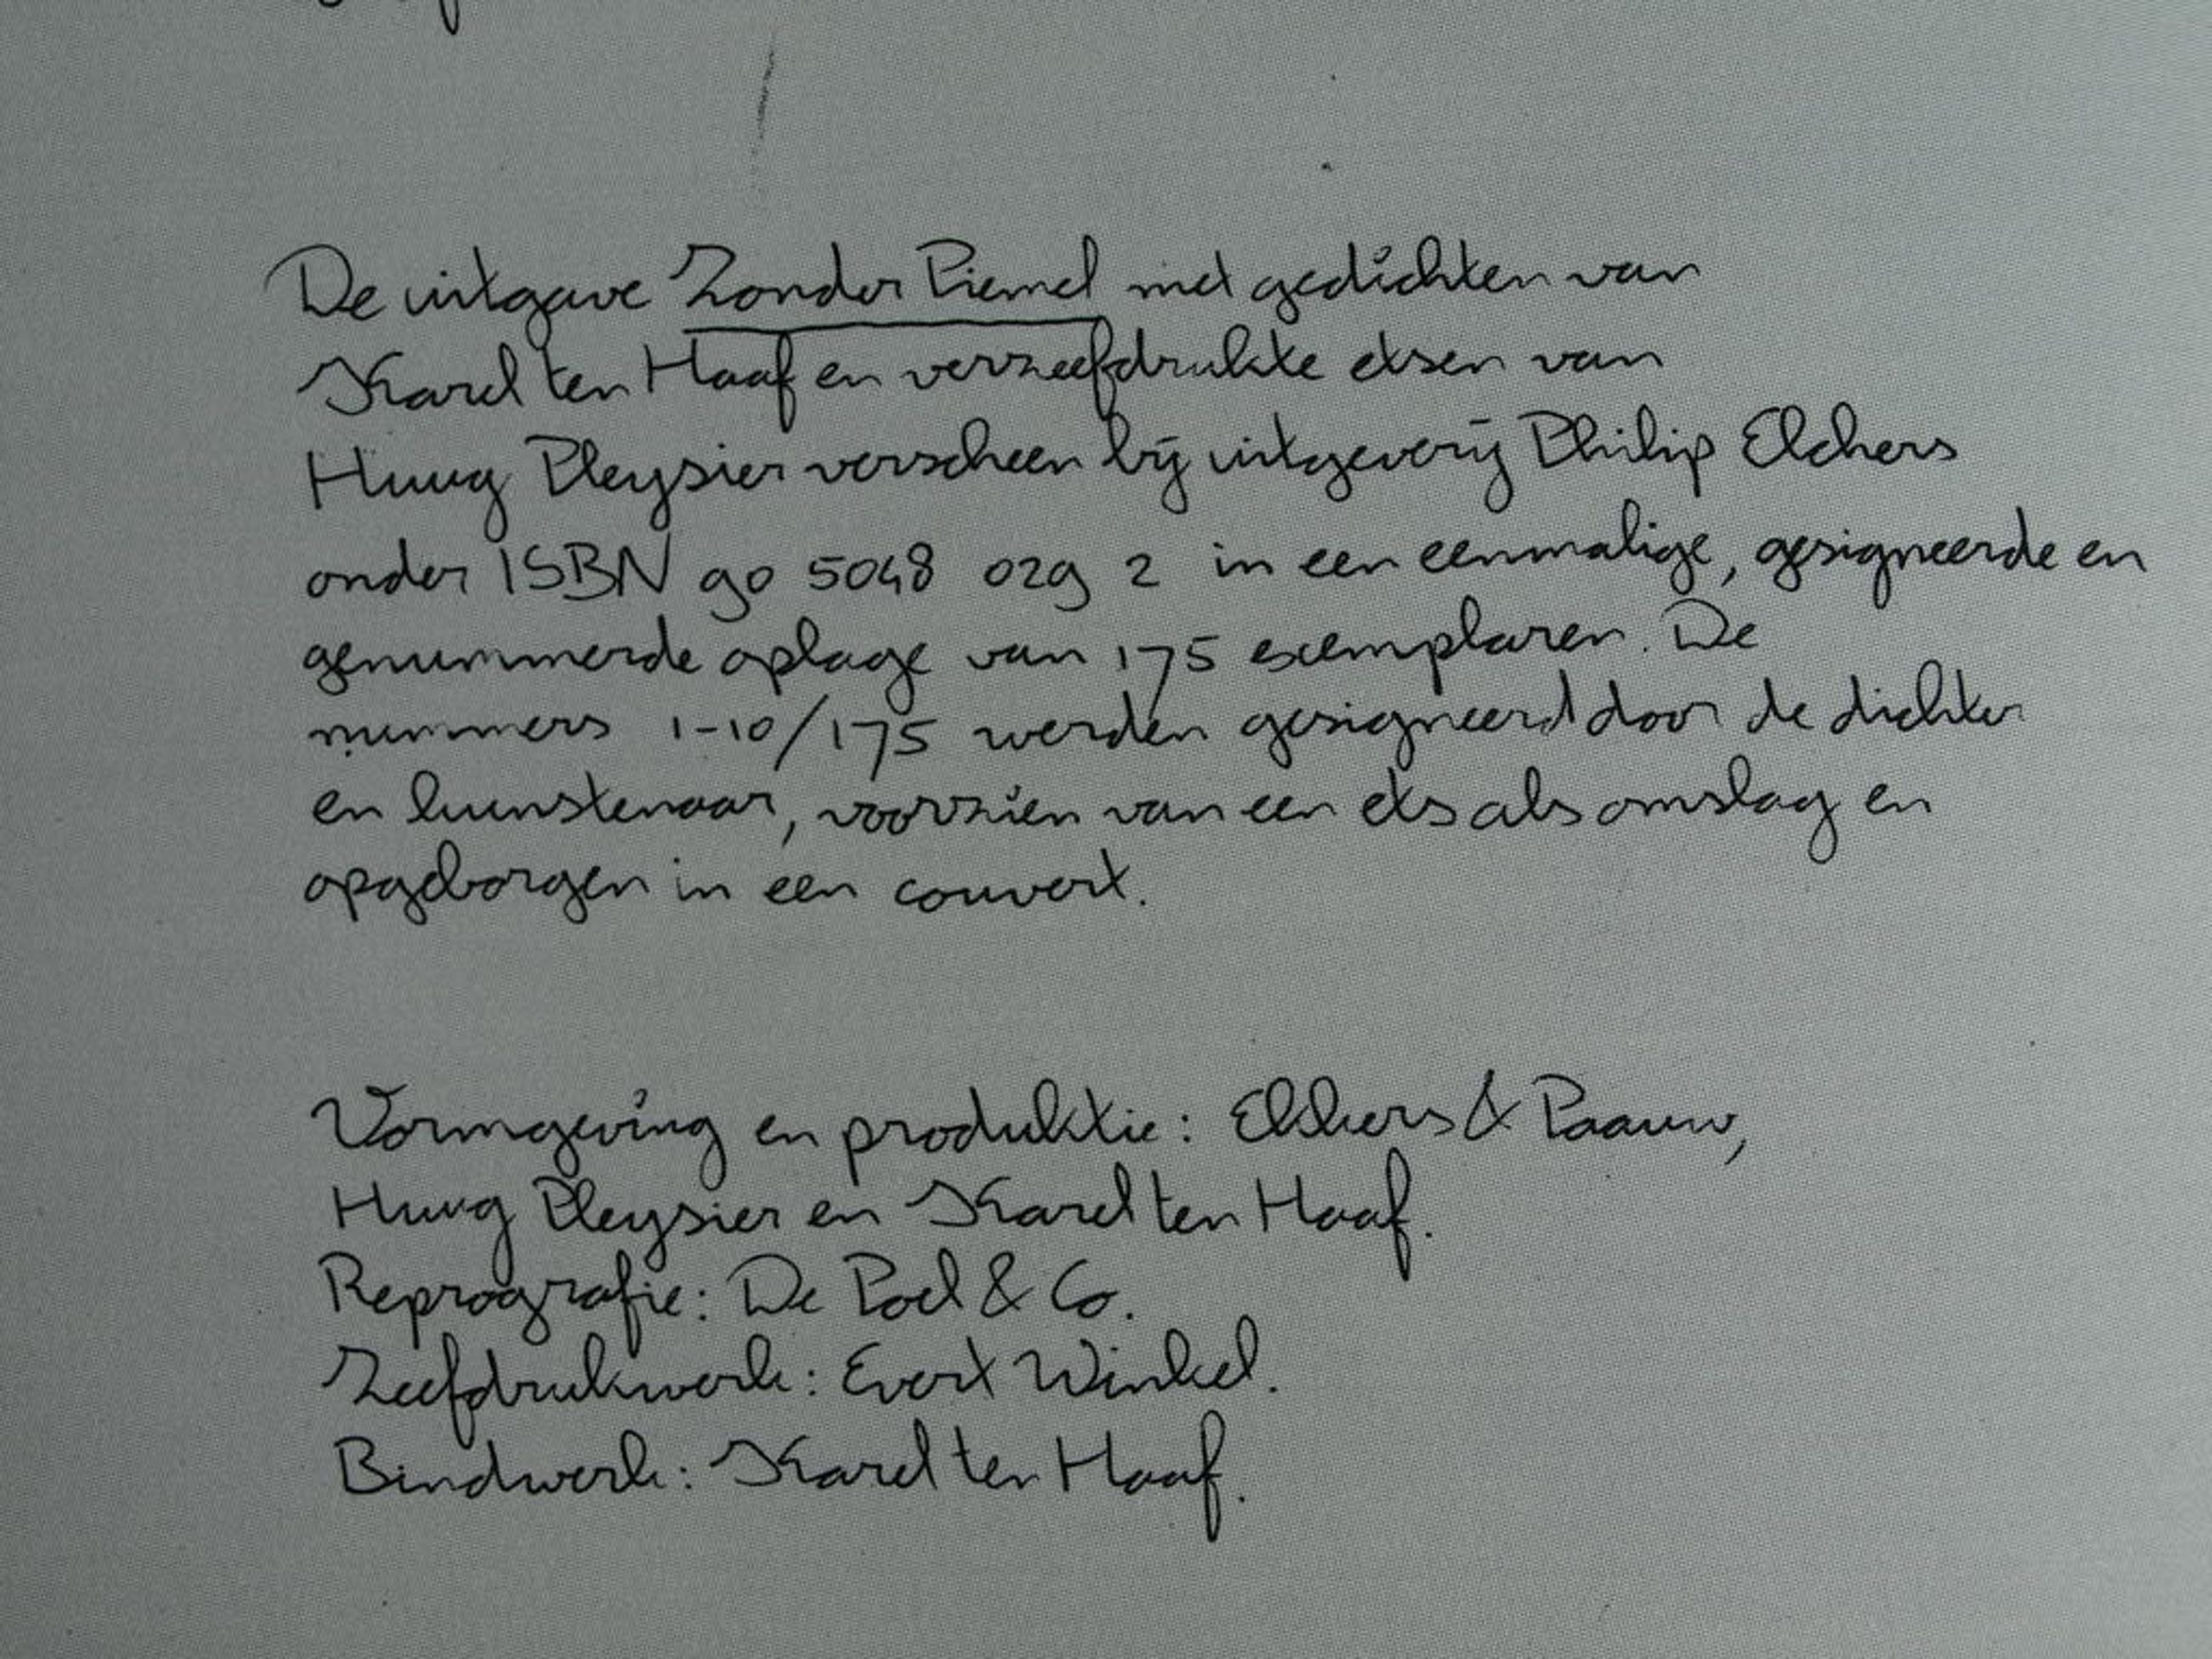 De uitgave Zonder Piemel met gedichten van
Karel ten Haaf en verzeefdrukte etsen van
Huug Pleysier verscheen bij uitgeverij Philip Elchers
onder ISBN 90 5048 029 2 in een eenmalige, gesigneerde en
genummerde oplage van 175 exemplaren. De
nummers 1-10/175 werden gesigneerd door de dichter
en kunstenaar, voorzien van een ets als omslag en
opgeborgen in een couvert.
Vormgeving en produktie: Elchers & Paauw,
Huug Pleysier en Karel ten Haaf.
Reprografie: De Poel & Co.
Zeefdrukwerk: Evert Winkel.
Bindwerk: Karel ten Haaf.